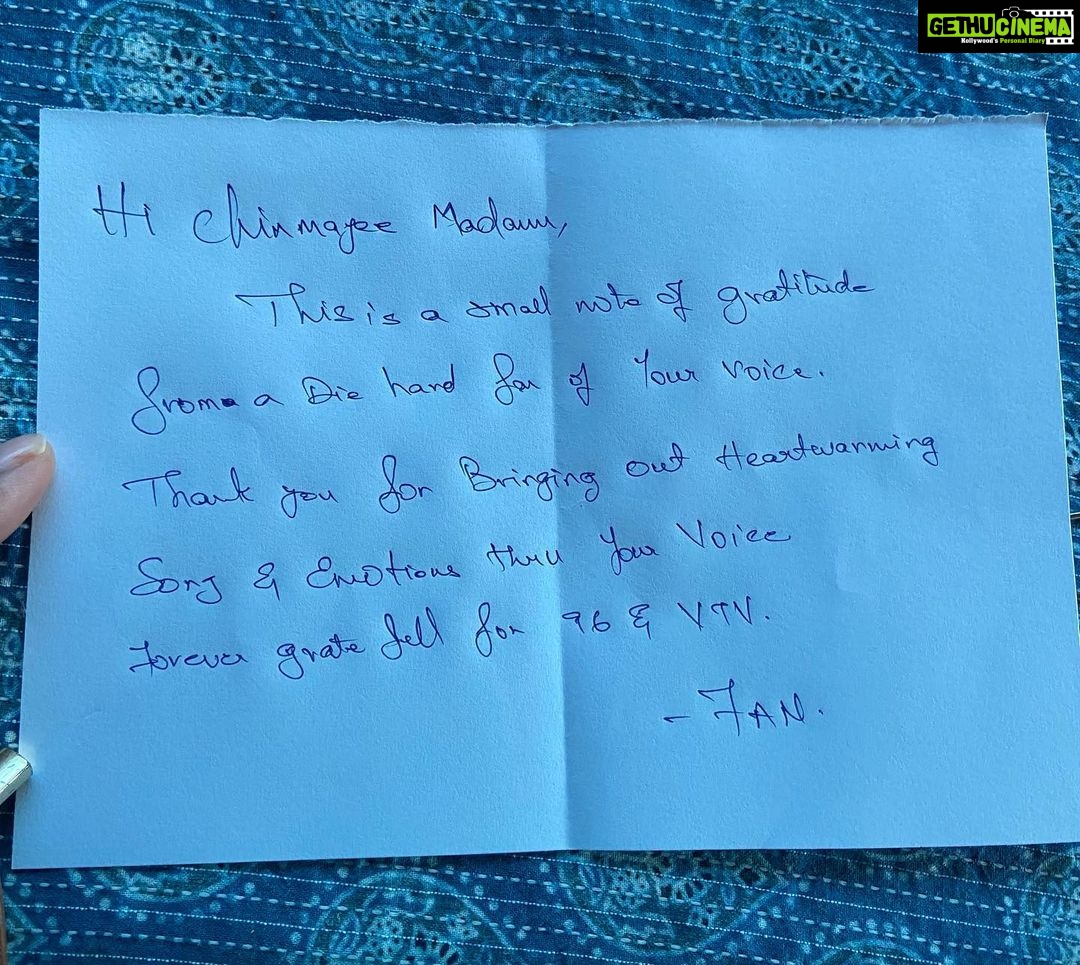 GETHUCINEMA
Kollywood's Personal Diary
Hi Chinmayee Madam,
This is a small note of gratitude
from a Die hard fan of Your voice.
Thank you for Bringing out Heartwarming
Song & Emotions thru Your Voice
Forever grate full for 96 & VTV.
- FAN.